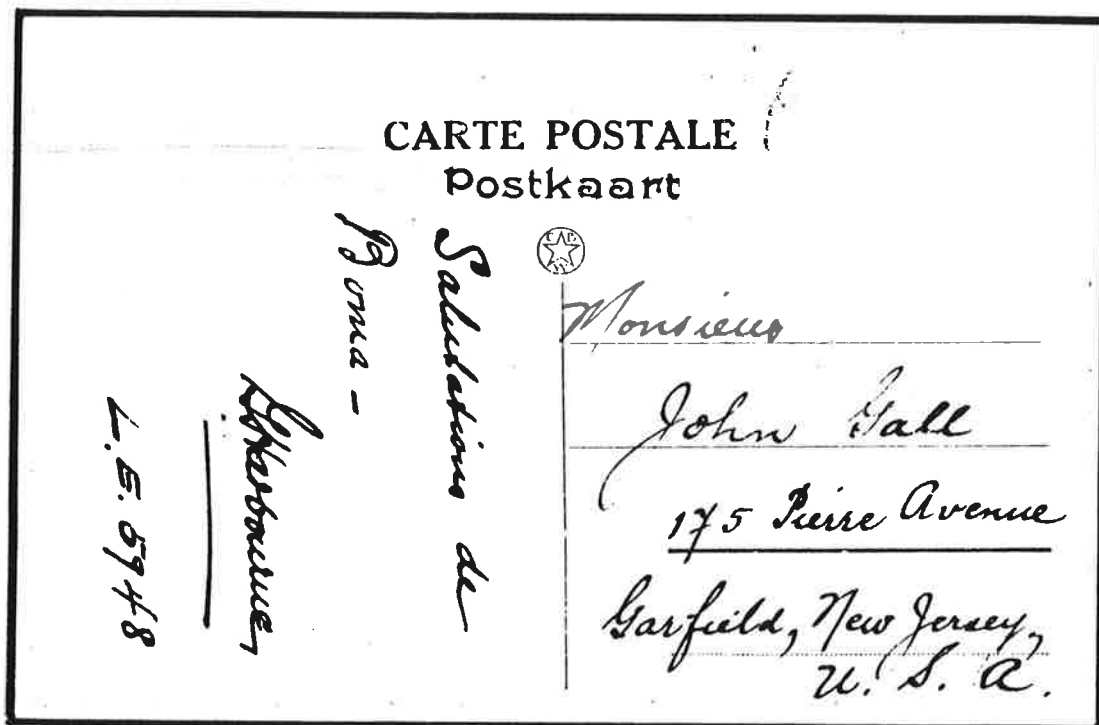 CARTE POSTALE
Postkaart
Salutations de
Boma -
L. E. 5948
Monsieur
John Gall
175 Pierre Avenue
Garfield, New Jersey,
U. S. A.